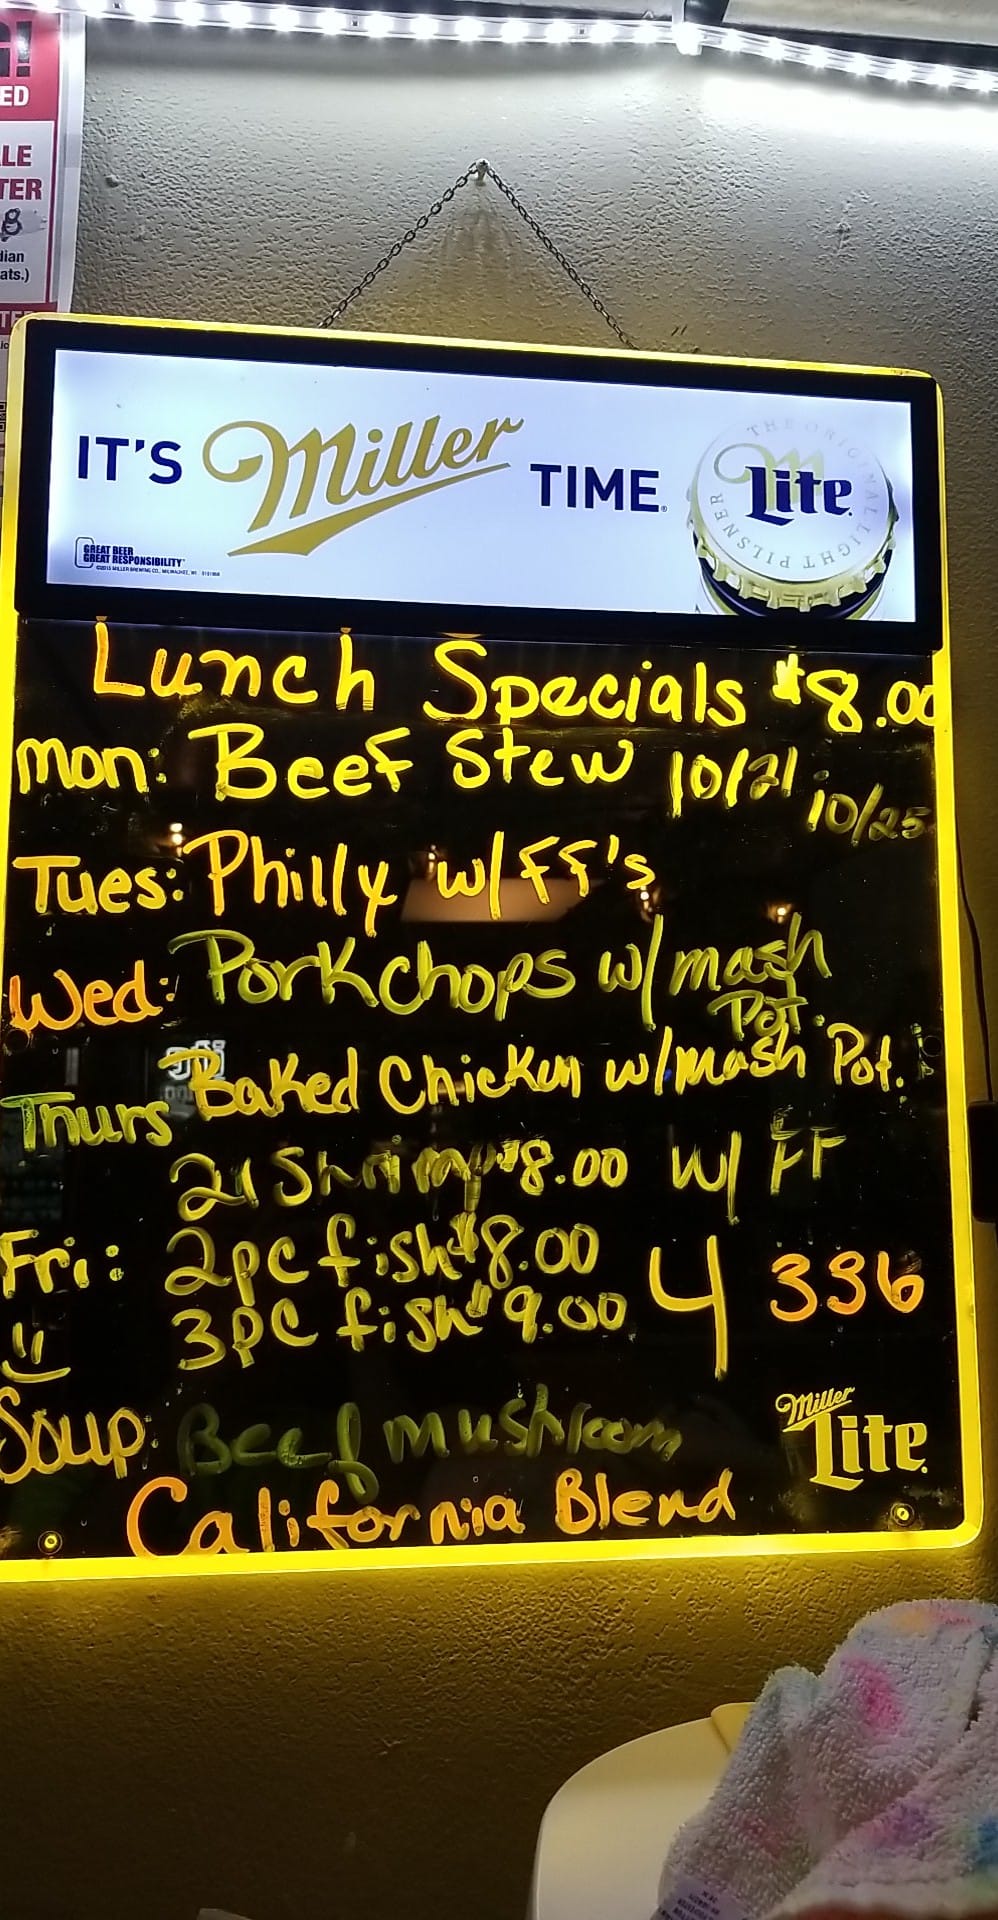 G!
ED
LE
TER
8
dian
ats.)
IT'S Miller TIME.
THE ORIGINAL LIGHT PILSNER
Lite
GREAT BEER
GREAT RESPONSIBILITY
Lunch Specials $8.00
Mon: Beef Stew 10/21 - 10/25
Tues: Philly w/FF's
Wed: Porkchops w/mash
Pot.
Thurs Baked Chicken w/mash Pot.
21 Shrimp $8.00 w/ FF
Fri: 2pc fish $8.00
3pc fish $9.00 4 336
Soup: Beef mushroom
California Blend
Miller
Lite